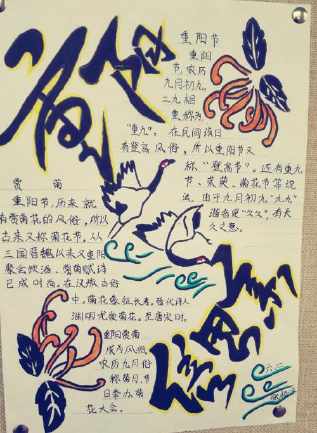 重阳
重阳节
重阳
节,农历
九月初九,
二九相
重,称为
"重九"。在民间该日
有登高风俗,所以重阳节又
称"登高节"。还有重九
节、茱萸、菊花节等说
法。由于九月初九"九九"
谐音是"久久",有长
久之意。
赏菊
重阳节,历来就
有赏菊花的风俗,所以
古来又称菊花节。从
三国晋魏以来重阳
聚会饮酒、赏菊赋诗
已成时尚。在汉族古俗
中,菊花象征长寿。
重阳赏菊
成为风俗
农历九月俗
称菊月,节
日举办菊
花大会。